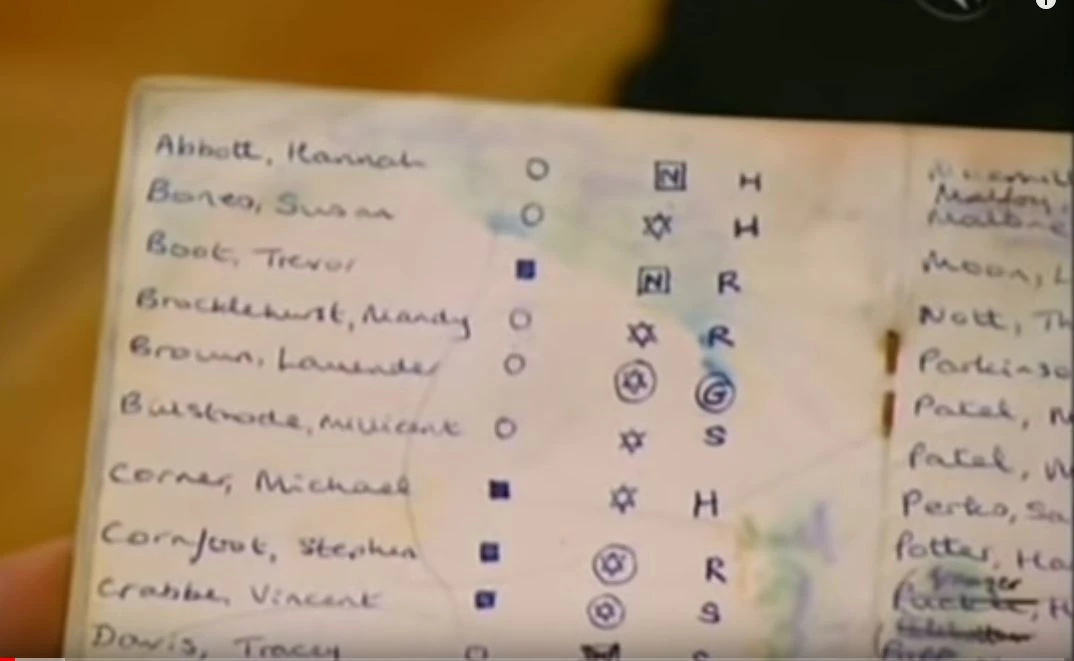 Abbott, Hannah N H
Bones, Susan H
Boot, Trevor N R
Brocklehurst, Mandy R
Brown, Lavender G
Bulstrode, Millicent S
Corner, Michael H
Cornfoot, Stephen R
Crabbe, Vincent S
Davis, Tracey S
Malfoy,
Moon, L
Nott, Th
Parkinso
Patel,
Patel,
Perks, Sa
Potter, Ha